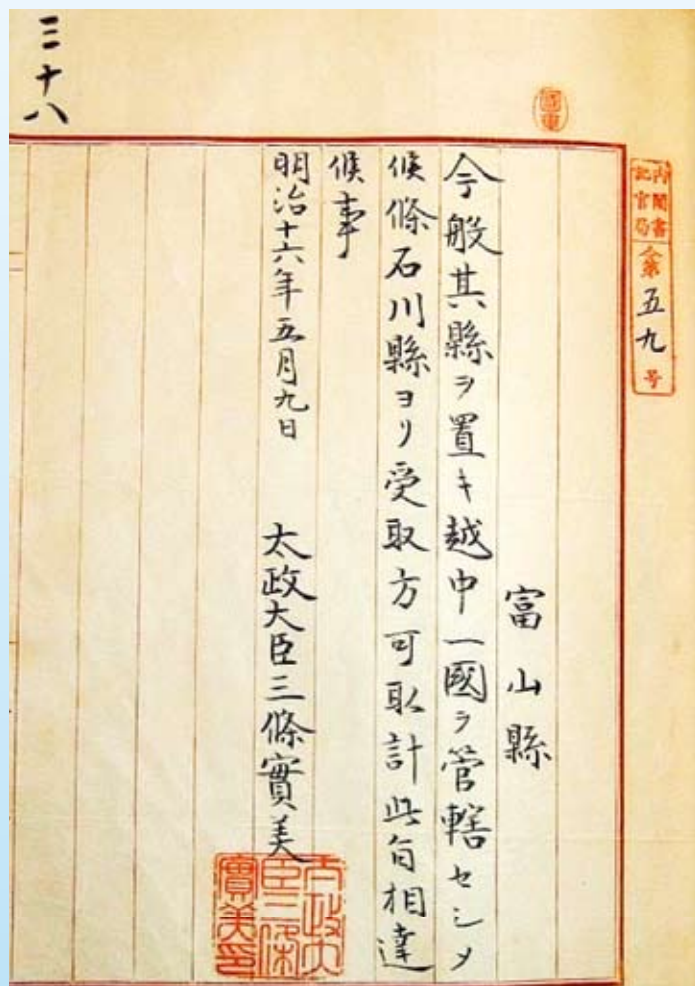 三十八
内閣書
記官局
令第五九号
富山縣
今般其縣ヲ置キ越中一國ヲ管轄セシメ
候條石川縣ヨリ受取方可取計此旨相達
候事
明治十六年五月九日 太政大臣三條實美
太政大
臣三條
實美印